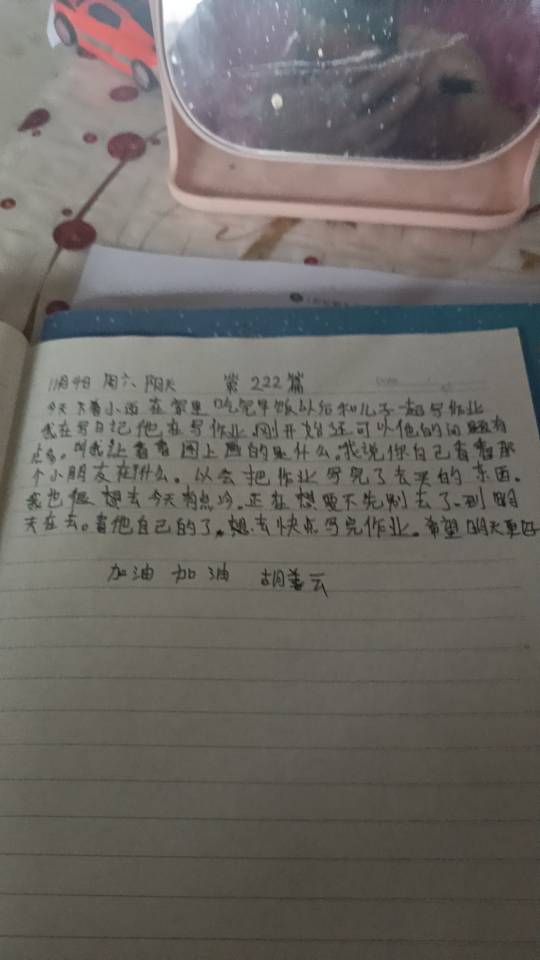 11月4日 周六 阴天 第222篇
今天下着小雨在家里吃完早饭以后和儿子一起写作业
我在写日记他在写作业刚开始还可以他的问题有
点多。叫我让看看图上画的是什么。我说你自己看看那
个小朋友在干什么。以会把作业写完了去买的东西。
我也很想去今天有点冷。正在想要不先别去了。到明
天在去。看他自己的了。想去快点写完作业。希望明天更好
加油 加油 胡善云